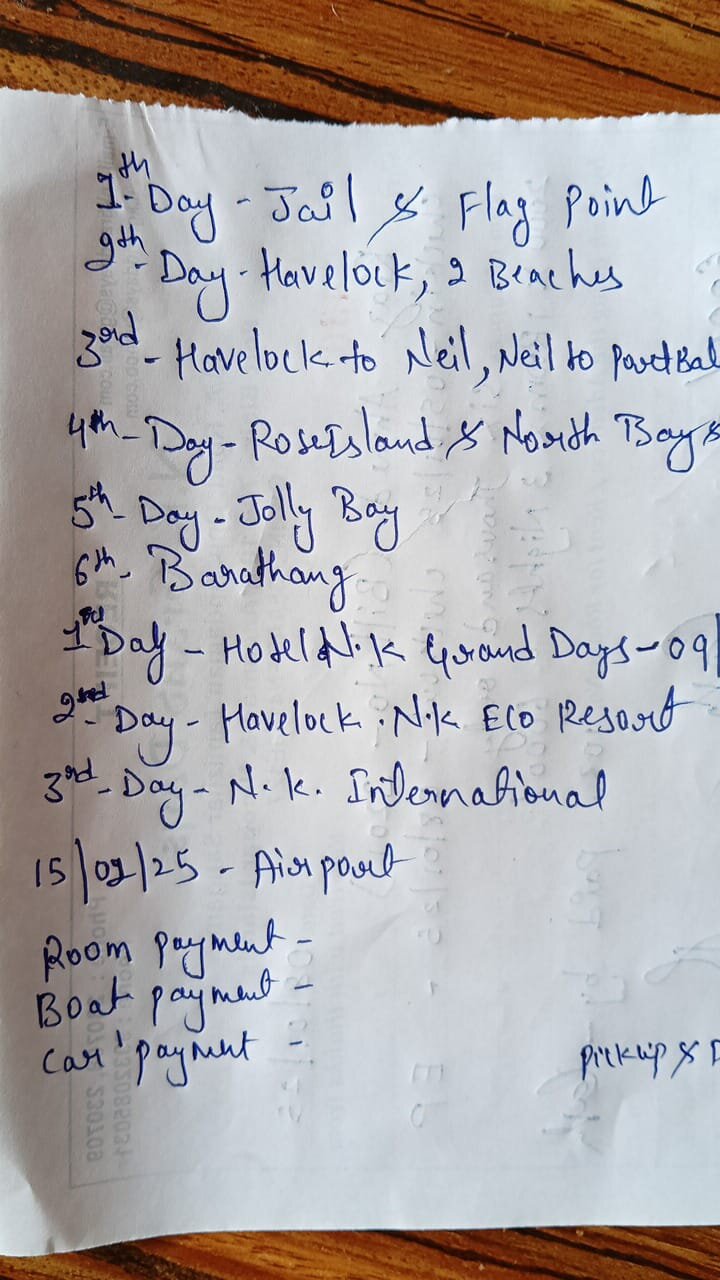 1th Day - Jail & Flag Point
2th - Day - Havelock, 2 Beaches
3rd - Havelock to Neil, Neil to PortBal
4th - Day - RoseIsland & North Bay &
5th - Day - Jolly Bay
6th - Barathang
1st Day - Hotel N.K Grand Days - 09/
2nd - Day - Havelock . N.K Eco Resort
3rd - Day - N.K. International
15/02/25 - Airport
Room payment -
Boat payment -
Car payment -
Pickup & D